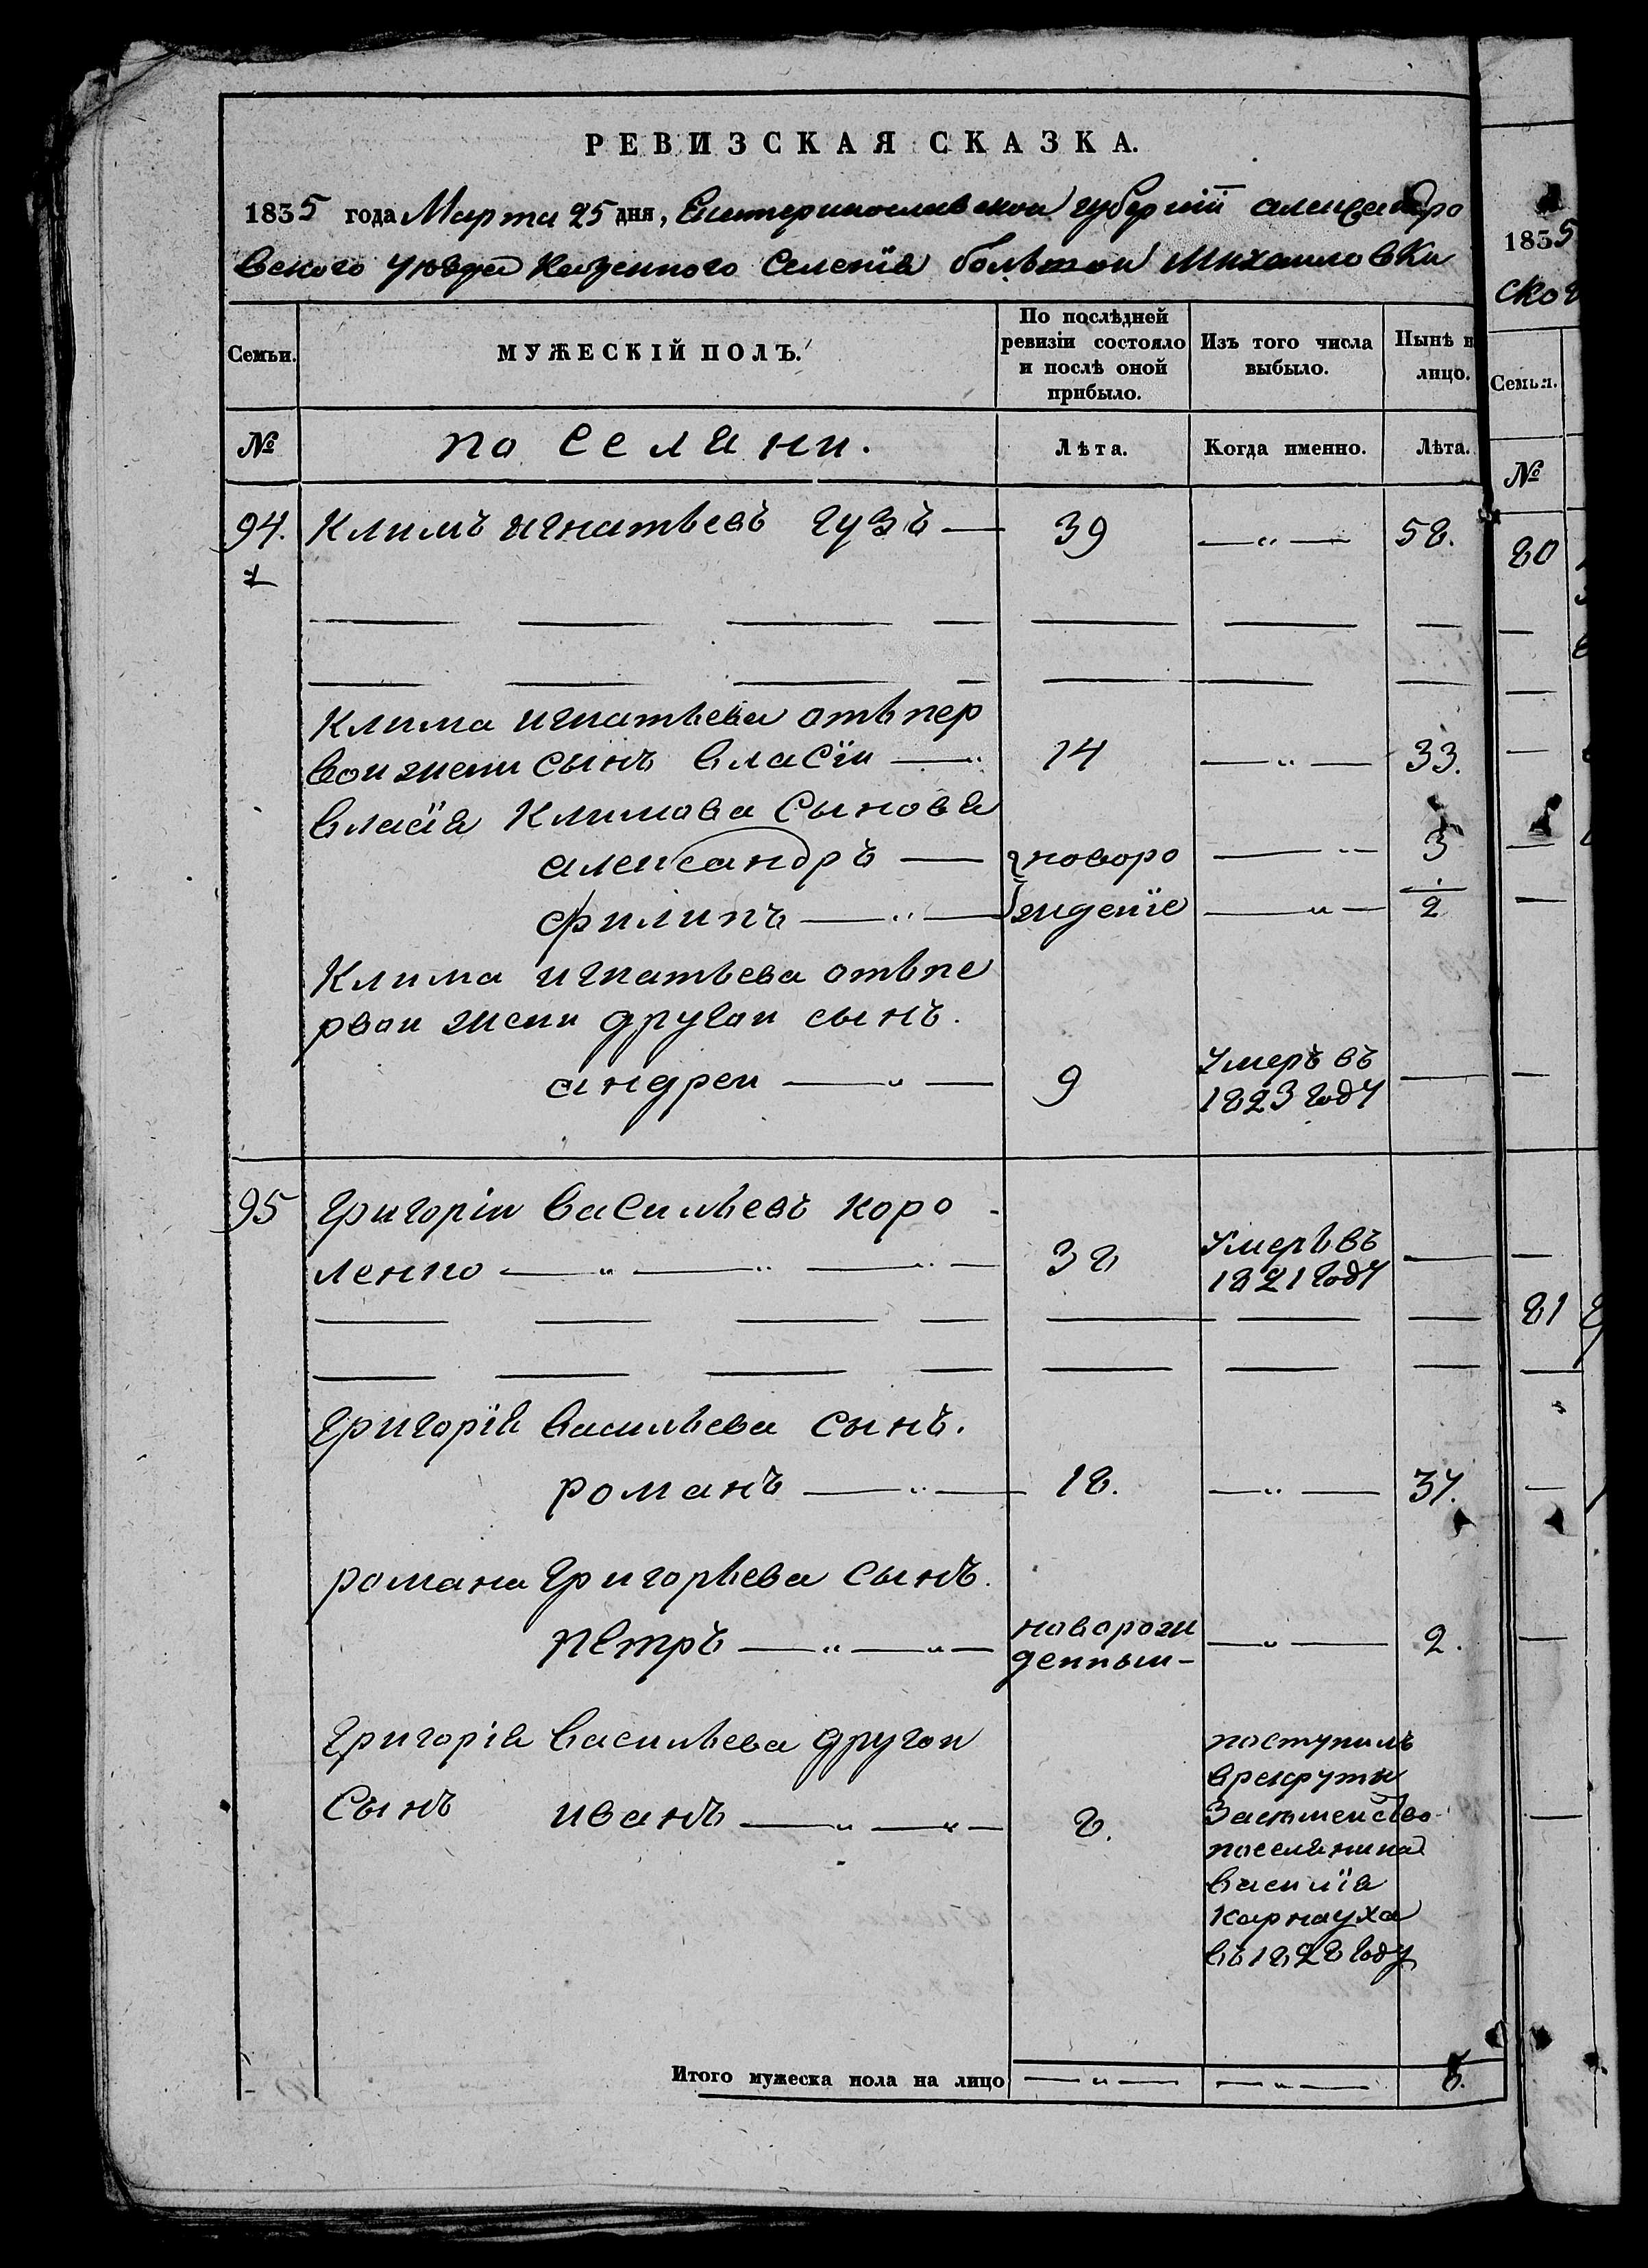 РЕВИЗСКАЯ СКАЗКА.
1835 года Марта 25 дня, Екатеринославской губернїй александро
вского уѣзда Казенного Селенїя большой Михаиловки
Семьи. МУЖЕСКІЙ ПОЛЪ. По послѣдней ревизіи состояло и послѣ оной прибыло. Изъ того числа выбыло. Нынѣ н лицо.
№ поселяни. Лѣта. Когда именно. Лѣта.
94. Климъ игнатьевъ гузъ — 39 —„— 58.
1
Клима игнатьева отъ пер
вои жени сынъ власїи — 14 —„— 33.
власїя Климова Сыновя
александръ — новоро —„— 3
филипъ —„— ждение —„— 2
Клима игнатьева отъ пе
рвои жени другои сынъ.
андреи —„— 9 Умеръ въ 1823 году —
95 григоріи васильевъ коро-
ленко —„— 38 Умеръ въ 1821 году —
григорїя васильева сынъ.
романъ —„— 18. —„— 37.
романа григорьева сынъ.
петръ —„—„— новорож —„— 2.
денныи-
григорія васильева другои
сынъ иванъ —„—„— 8.
поступилъ
врекруты
поселянина
василїя
Карнауха
въ 1828 году
Итого мужеска пола на лицо —„— —„— 5.
1835
ской
Семьи.
№
80
81